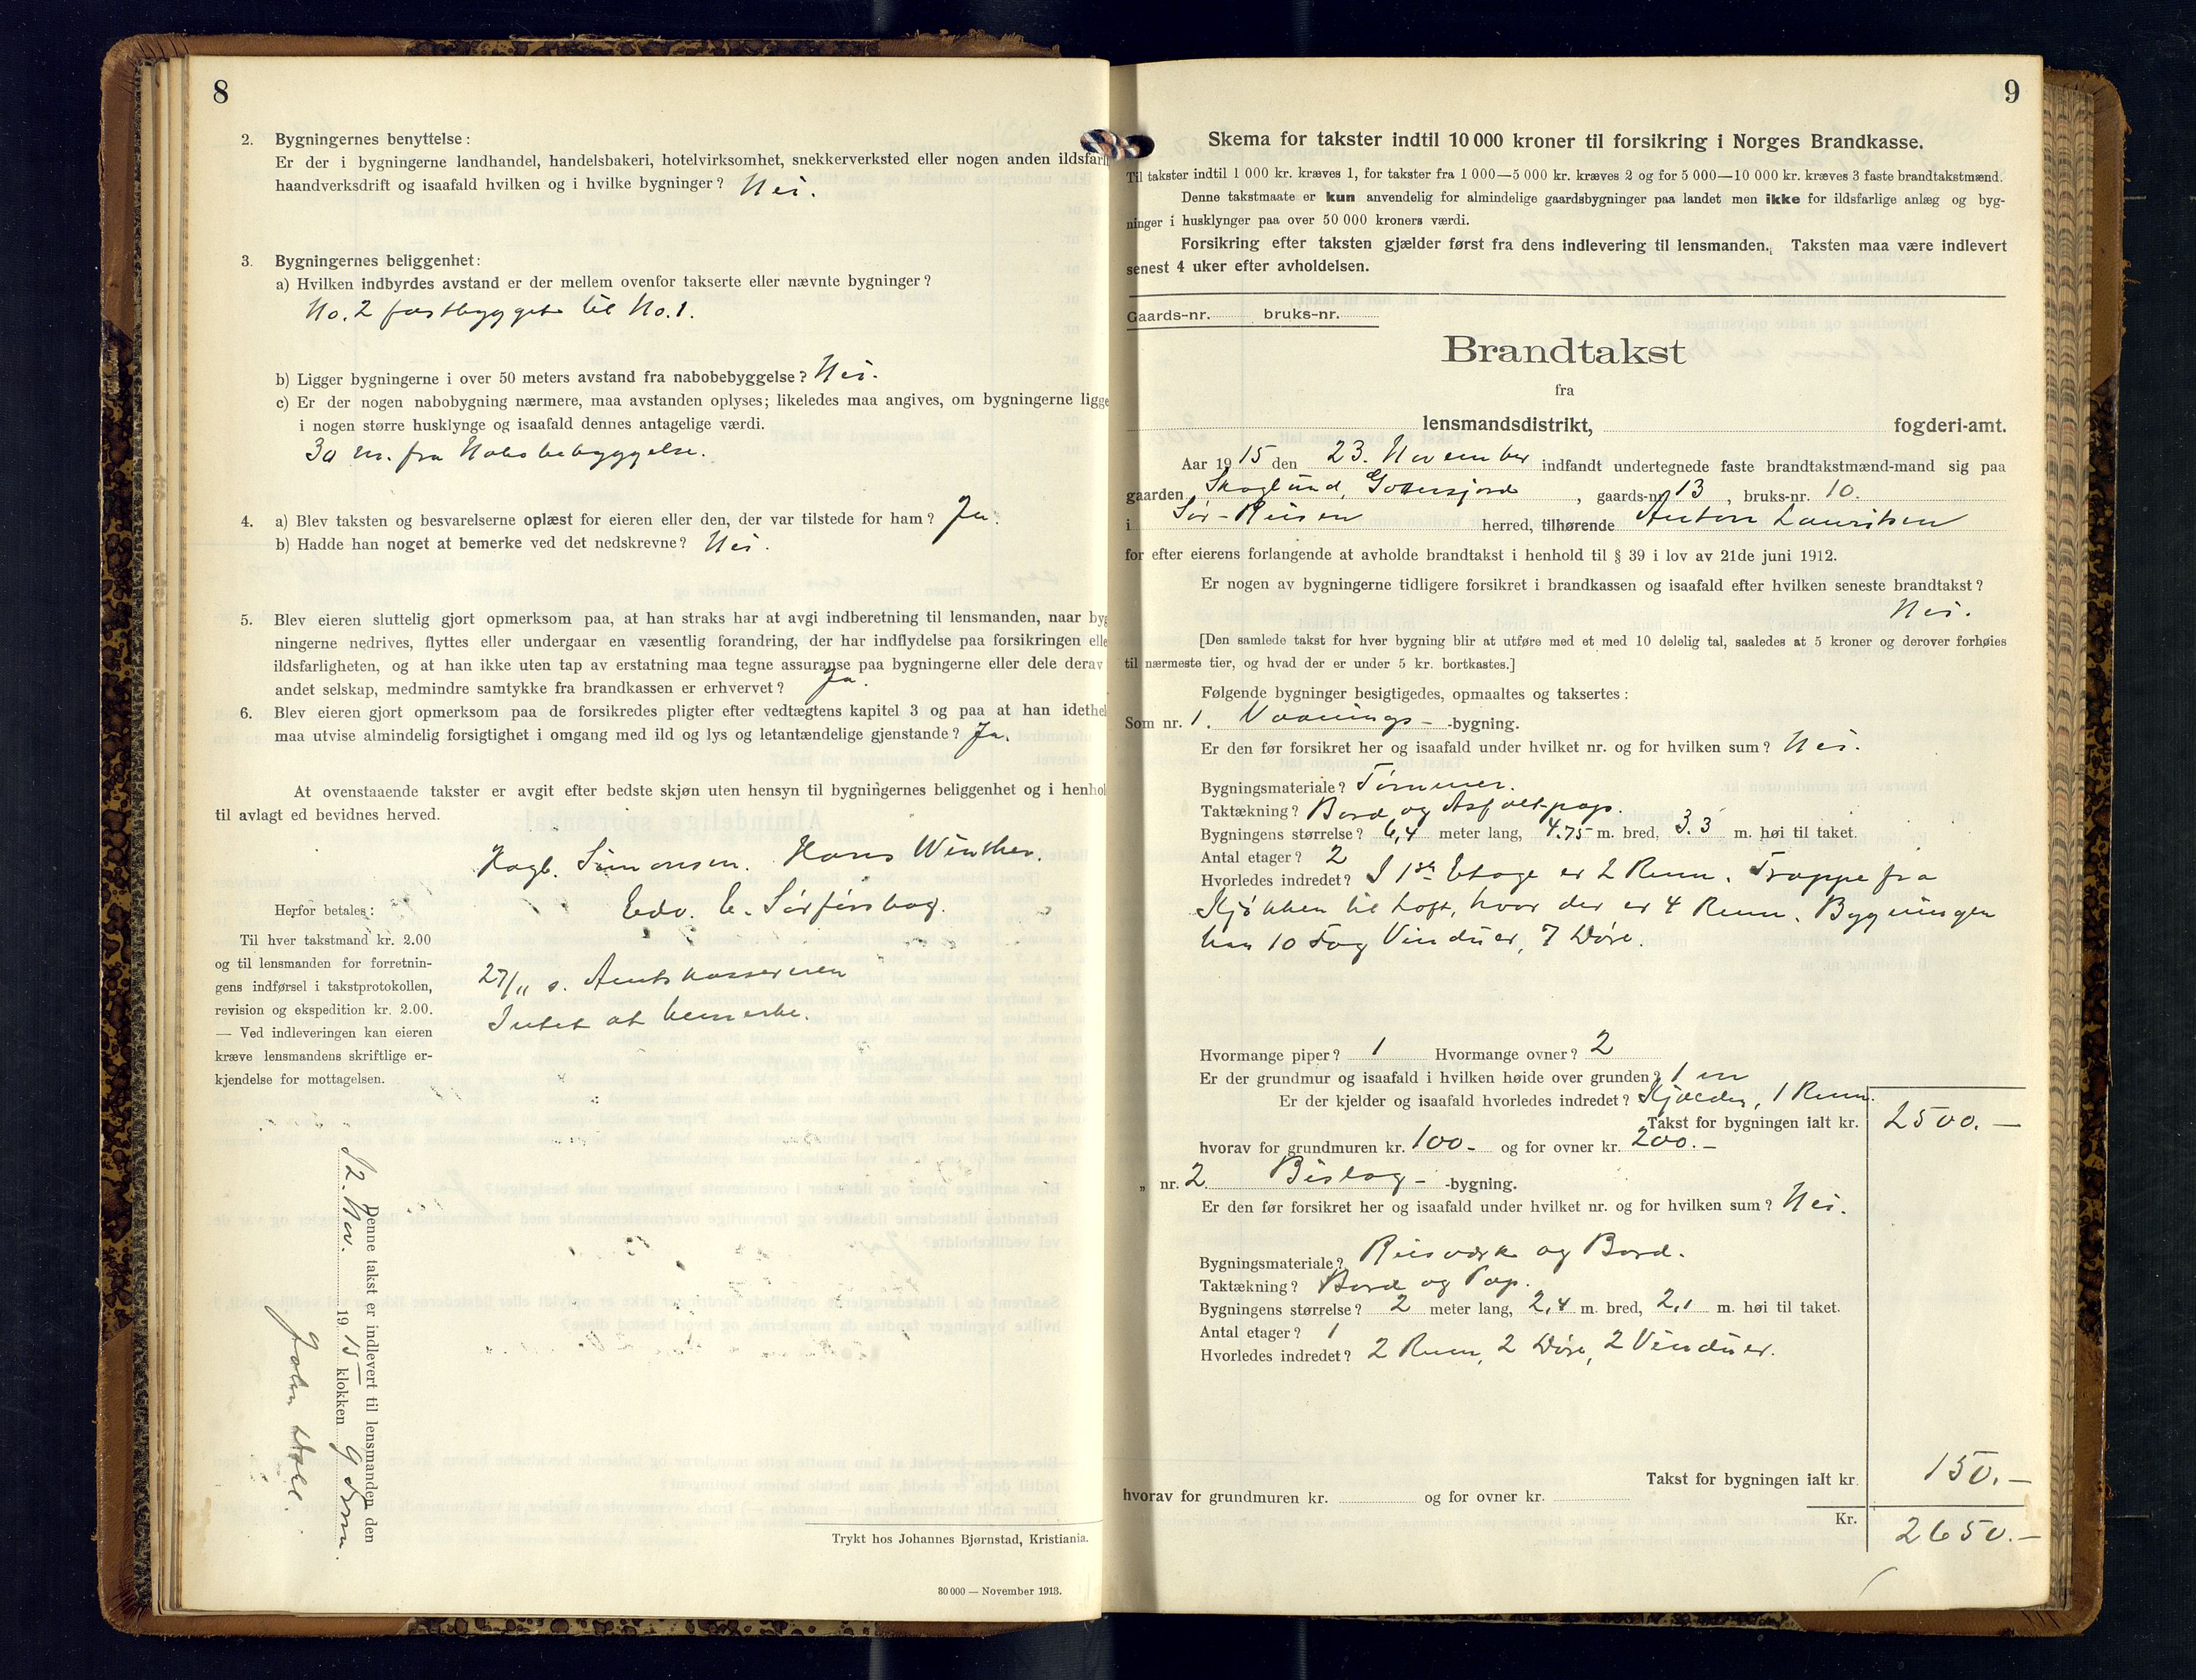 8
2. Bygningernes benyttelse:
Er der i bygningerne landhandel, handelsbakeri, hotelvirksomhet, snekkerverksted eller nogen anden ildsfarli
haandverksdrift og isaafald hvilken og i hvilke bygninger? Nei.
3. Bygningernes beliggenhet:
a) Hvilken indbyrdes avstand er der mellem ovenfor takserte eller nævnte bygninger?
No. 2 fastbygget til No. 1.
b) Ligger bygningerne i over 50 meters avstand fra nabobebyggelse? Nei.
c) Er der nogen nabobygning nærmere, maa avstanden oplyses; likeledes maa angives, om bygningerne ligge
i nogen større husklynge og isaafald dennes antagelige værdi.
30 m. fra Nabobebyggelse.
4. a) Blev taksten og besvarelserne oplæst for eieren eller den, der var tilstede for ham? Ja.
b) Hadde han noget at bemerke ved det nedskrevne? Nei.
5. Blev eieren sluttelig gjort opmerksom paa, at han straks har at avgi indberetning til lensmanden, naar byg
ningerne nedrives, flyttes eller undergaar en væsentlig forandring, der har indflydelse paa forsikringen elle
ildsfarligheten, og at han ikke uten tap av erstatning maa tegne assuranse paa bygningerne eller dele derav
andet selskap, medmindre samtykke fra brandkassen er erhvervet? Ja.
6. Blev eieren gjort opmerksom paa de forsikredes pligter efter vedtægtens kapitel 3 og paa at han idethel
maa utvise almindelig forsigtighet i omgang med ild og lys og letantændelige gjenstande? Ja.
At ovenstaaende takster er avgit efter bedste skjøn uten hensyn til bygningernes beliggenhet og i henhol
til avlagt ed bevidnes herved.
Hagb. Simonsen. Hans Winther.
Edv. C. Sørfjorsbog.
Herfor betales:
Til hver takstmand kr. 2.00
og til lensmanden for forretnin-
gens indførsel i takstprotokollen,
revision og ekspedition kr. 2.00.
— Ved indleveringen kan eieren
kræve lensmandens skriftlige er-
kjendelse for mottagelsen.
27/11 s. Amtskassereren
Intet at bemerke.
Denne takst er indlevert til lensmanden den
Nov. 1915 klokken 9 Form.
John Holl.
Trykt hos Johannes Bjørnstad, Kristiania.
30 000 — November 1913.
9
Skema for takster indtil 10 000 kroner til forsikring i Norges Brandkasse.
Til takster indtil 1 000 kr. kræves 1, for takster fra 1 000—5 000 kr. kræves 2 og for 5 000—10 000 kr. kræves 3 faste brandtakstmænd.
Denne takstmaate er kun anvendelig for almindelige gaardsbygninger paa landet men ikke for ildsfarlige anlæg og byg-
ninger i husklynger paa over 50 000 kroners værdi.
Forsikring efter taksten gjælder først fra dens indlevering til lensmanden. Taksten maa være indlevert
senest 4 uker efter avholdelsen.
Gaards-nr. bruks-nr.
Brandtakst
fra
lensmandsdistrikt, fogderi-amt.
Aar 1915 den 23. November indfandt undertegnede faste brandtakstmænd-mand sig paa
gaarden Skoglund, Gottesjord, gaards-nr 13, bruks-nr. 10.
i Sør-Reisen herred, tilhørende Anton Lauritsen
for efter eierens forlangende at avholde brandtakst i henhold til § 39 i lov av 21de juni 1912.
Er nogen av bygningerne tidligere forsikret i brandkassen og isaafald efter hvilken seneste brandtakst?
Nei.
[Den samlede takst for hver bygning blir at utføre med et med 10 delelig tal, saaledes at 5 kroner og derover forhøies
til nærmeste tier, og hvad der er under 5 kr. bortkastes.]
Følgende bygninger besigtigedes, opmaaltes og taksertes:
Som nr. 1. Vaanings- -bygning.
Er den før forsikret her og isaafald under hvilket nr. og for hvilken sum? Nei.
Bygningsmateriale? Tømmer.
Taktækning? Bord og Asfaltpap.
Bygningens størrelse? 6,4 meter lang, 4.75 m. bred, 3.3 m. høi til taket.
Antal etager? 2
Hvorledes indredet? I 1ste Etage er 2 Rum. Trappe fra
Kjøkken til Loft, hvor der er 4 Rum. Bygningen
har 10 Fag Vinduer, 7 Døre.
Hvormange piper? 1 Hvormange ovner? 2
Er der grundmur og isaafald i hvilken høide over grunden? 1 m
Er der kjelder og isaafald hvorledes indredet? Kjælder, 1 Rum.
Takst for bygningen ialt kr. 2500.—
hvorav for grundmuren kr. 100.- og for ovner kr. 200.—
„ nr. 2 Bislag- -bygning.
Er den før forsikret her og isaafald under hvilket nr. og for hvilken sum? Nei.
Bygningsmateriale? Reisværk og Bord.
Taktækning? Bord og Pap.
Bygningens størrelse? 2 meter lang, 2,4 m. bred, 2,1 m. høi til taket.
Antal etager? 1
Hvorledes indredet? 2 Rum, 2 Døre, 2 Vinduer.
Takst for bygningen ialt kr. 150.—
hvorav for grundmuren kr. og for ovner kr.
Kr. 2650.—